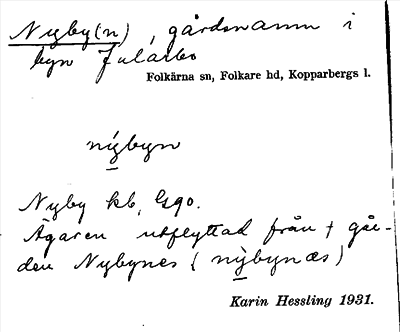 Nyby(n), gårdsnamn i
byn Jularbo
Folkärna sn, Folkare hd, Kopparbergs l.
nýbyn
Nyby kb, Ggo.
Ägaren utflyttad från + går-
den Nybynes (nỳbynæs)
Karin Hessling 1931.